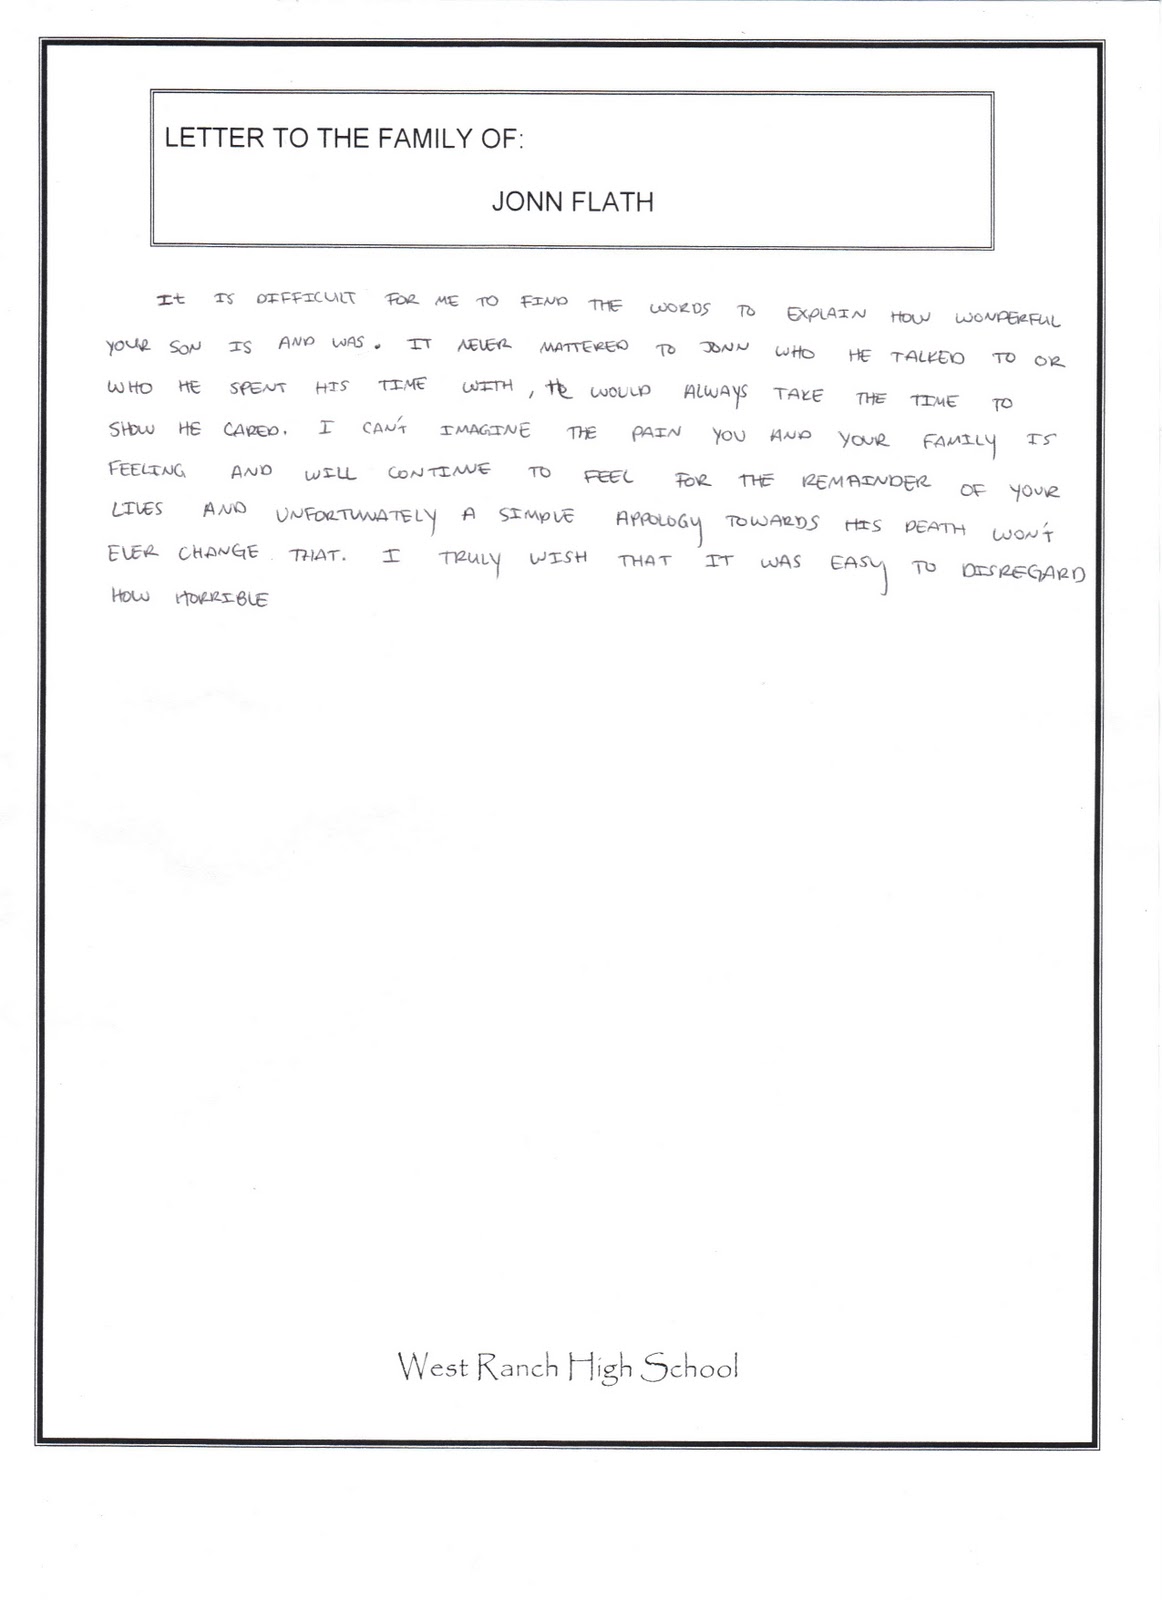 LETTER TO THE FAMILY OF:
JONN FLATH
It IS DIFFICULT FOR ME TO FIND THE WORDS TO EXPLAIN HOW WONDERFUL
YOUR SON IS AND WAS. IT NEVER MATTERED TO JONN WHO HE TALKED TO OR
WHO HE SPENT HIS TIME WITH, HE WOULD ALWAYS TAKE THE TIME TO
SHOW HE CARED. I CAN'T IMAGINE THE PAIN YOU AND YOUR FAMILY IS
FEELING AND WILL CONTINUE TO FEEL FOR THE REMAINDER OF YOUR
LIVES AND UNFORTUNATELY A SIMPLE APPOLOGY TOWARDS HIS DEATH WON'T
EVER CHANGE THAT. I TRULY WISH THAT IT WAS EASY TO DISREGARD
HOW HORRIBLE
West Ranch High School